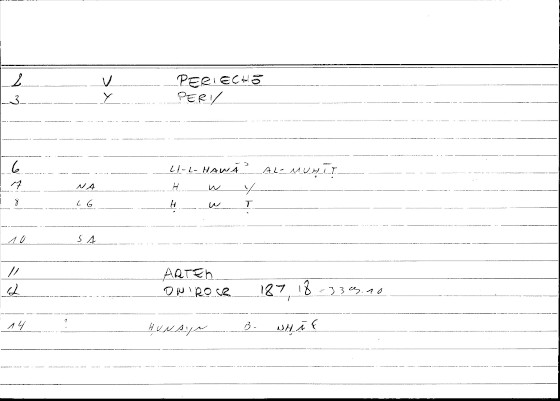 2 V PERIECHŌ
3 Y PERI/
6 LI-L-HAWĀʾ AL-MUḤĪṬ
7 NA H W Y
8 LG Ḥ W Ṭ
10 SA
11 ARTEM
12 ONIROCR 187, 18 - 339, 10
14 ḤUNAYN B. ISḤĀQ